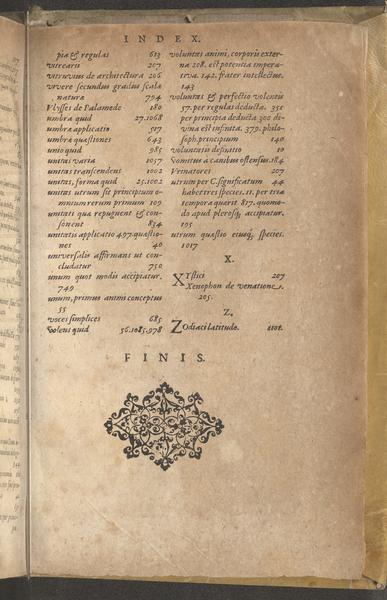 INDEX.
pia & regulas 613
vitrearii 207
vitruvius de architectura 206
vivere secundum gradus scalæ
natura 794
Vlysses de Palamede 180
umbra quid 27.1068
umbra applicatio 517
umbra quæstiones 643
unio quid 985
unitas varia 1057
unitas transcendens 1002
unitas, forma quid 25.1002
unitas utrum sit principium o-
mnium rerum primum 109
unitati qua repugnent & con-
sonent 834
unitatis applicatio 497. quæstio-
nes 40
universalis affirmans ut con-
cludatur 750
unum quot modis accipiatur.
749
unum, primus animi conceptus
55
voces simplices 685
Voletus quid 56.1085.978
voluntas animi, corporis exter-
na 208. est potentia impera-
tiva. 142. frater intellectus.
143
voluntas & perfectio volentis
57. per regulas deducta. 351
per principia deducta 300 di-
vina est infinita. 379. philo-
soph. principium 140
voluntatis definitio 10
Vomitus a canibus ostensus. 184
Vrinatores 207
utrum per C. significatum 44
habet tres species. 11. per tria
tempora quærit 817. quomo-
do apud plerosq; accipiatur.
195
utrum quæstio eiusq; species.
1017
X.
XYstici 207
Xenophon de venatione.
205.
Z.
Zodiaci latitudo. 1101.
FINIS.